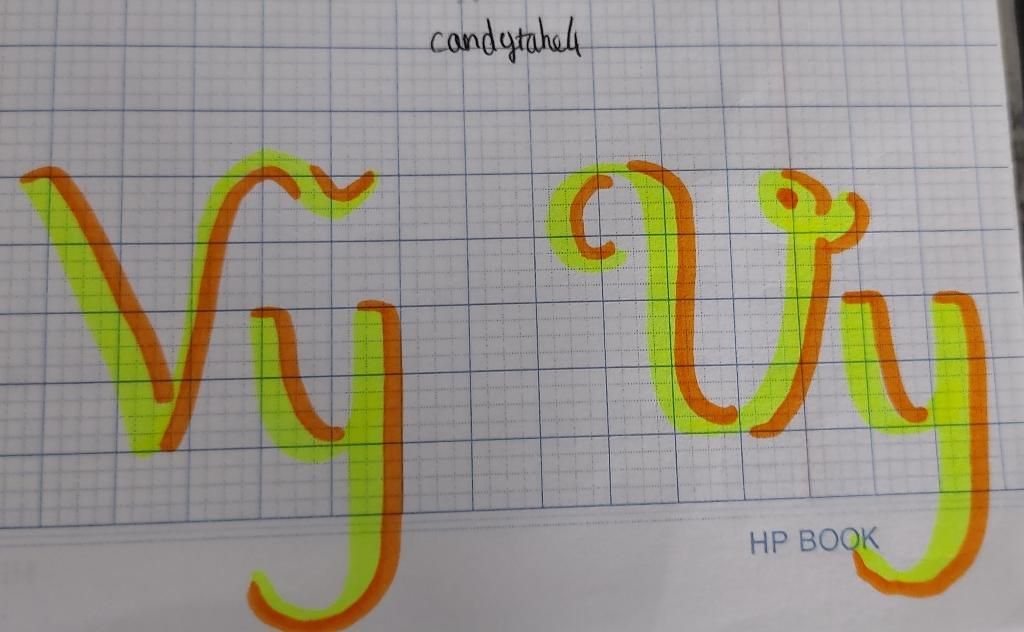 candytahe4
Vy Vy
HP BOOK